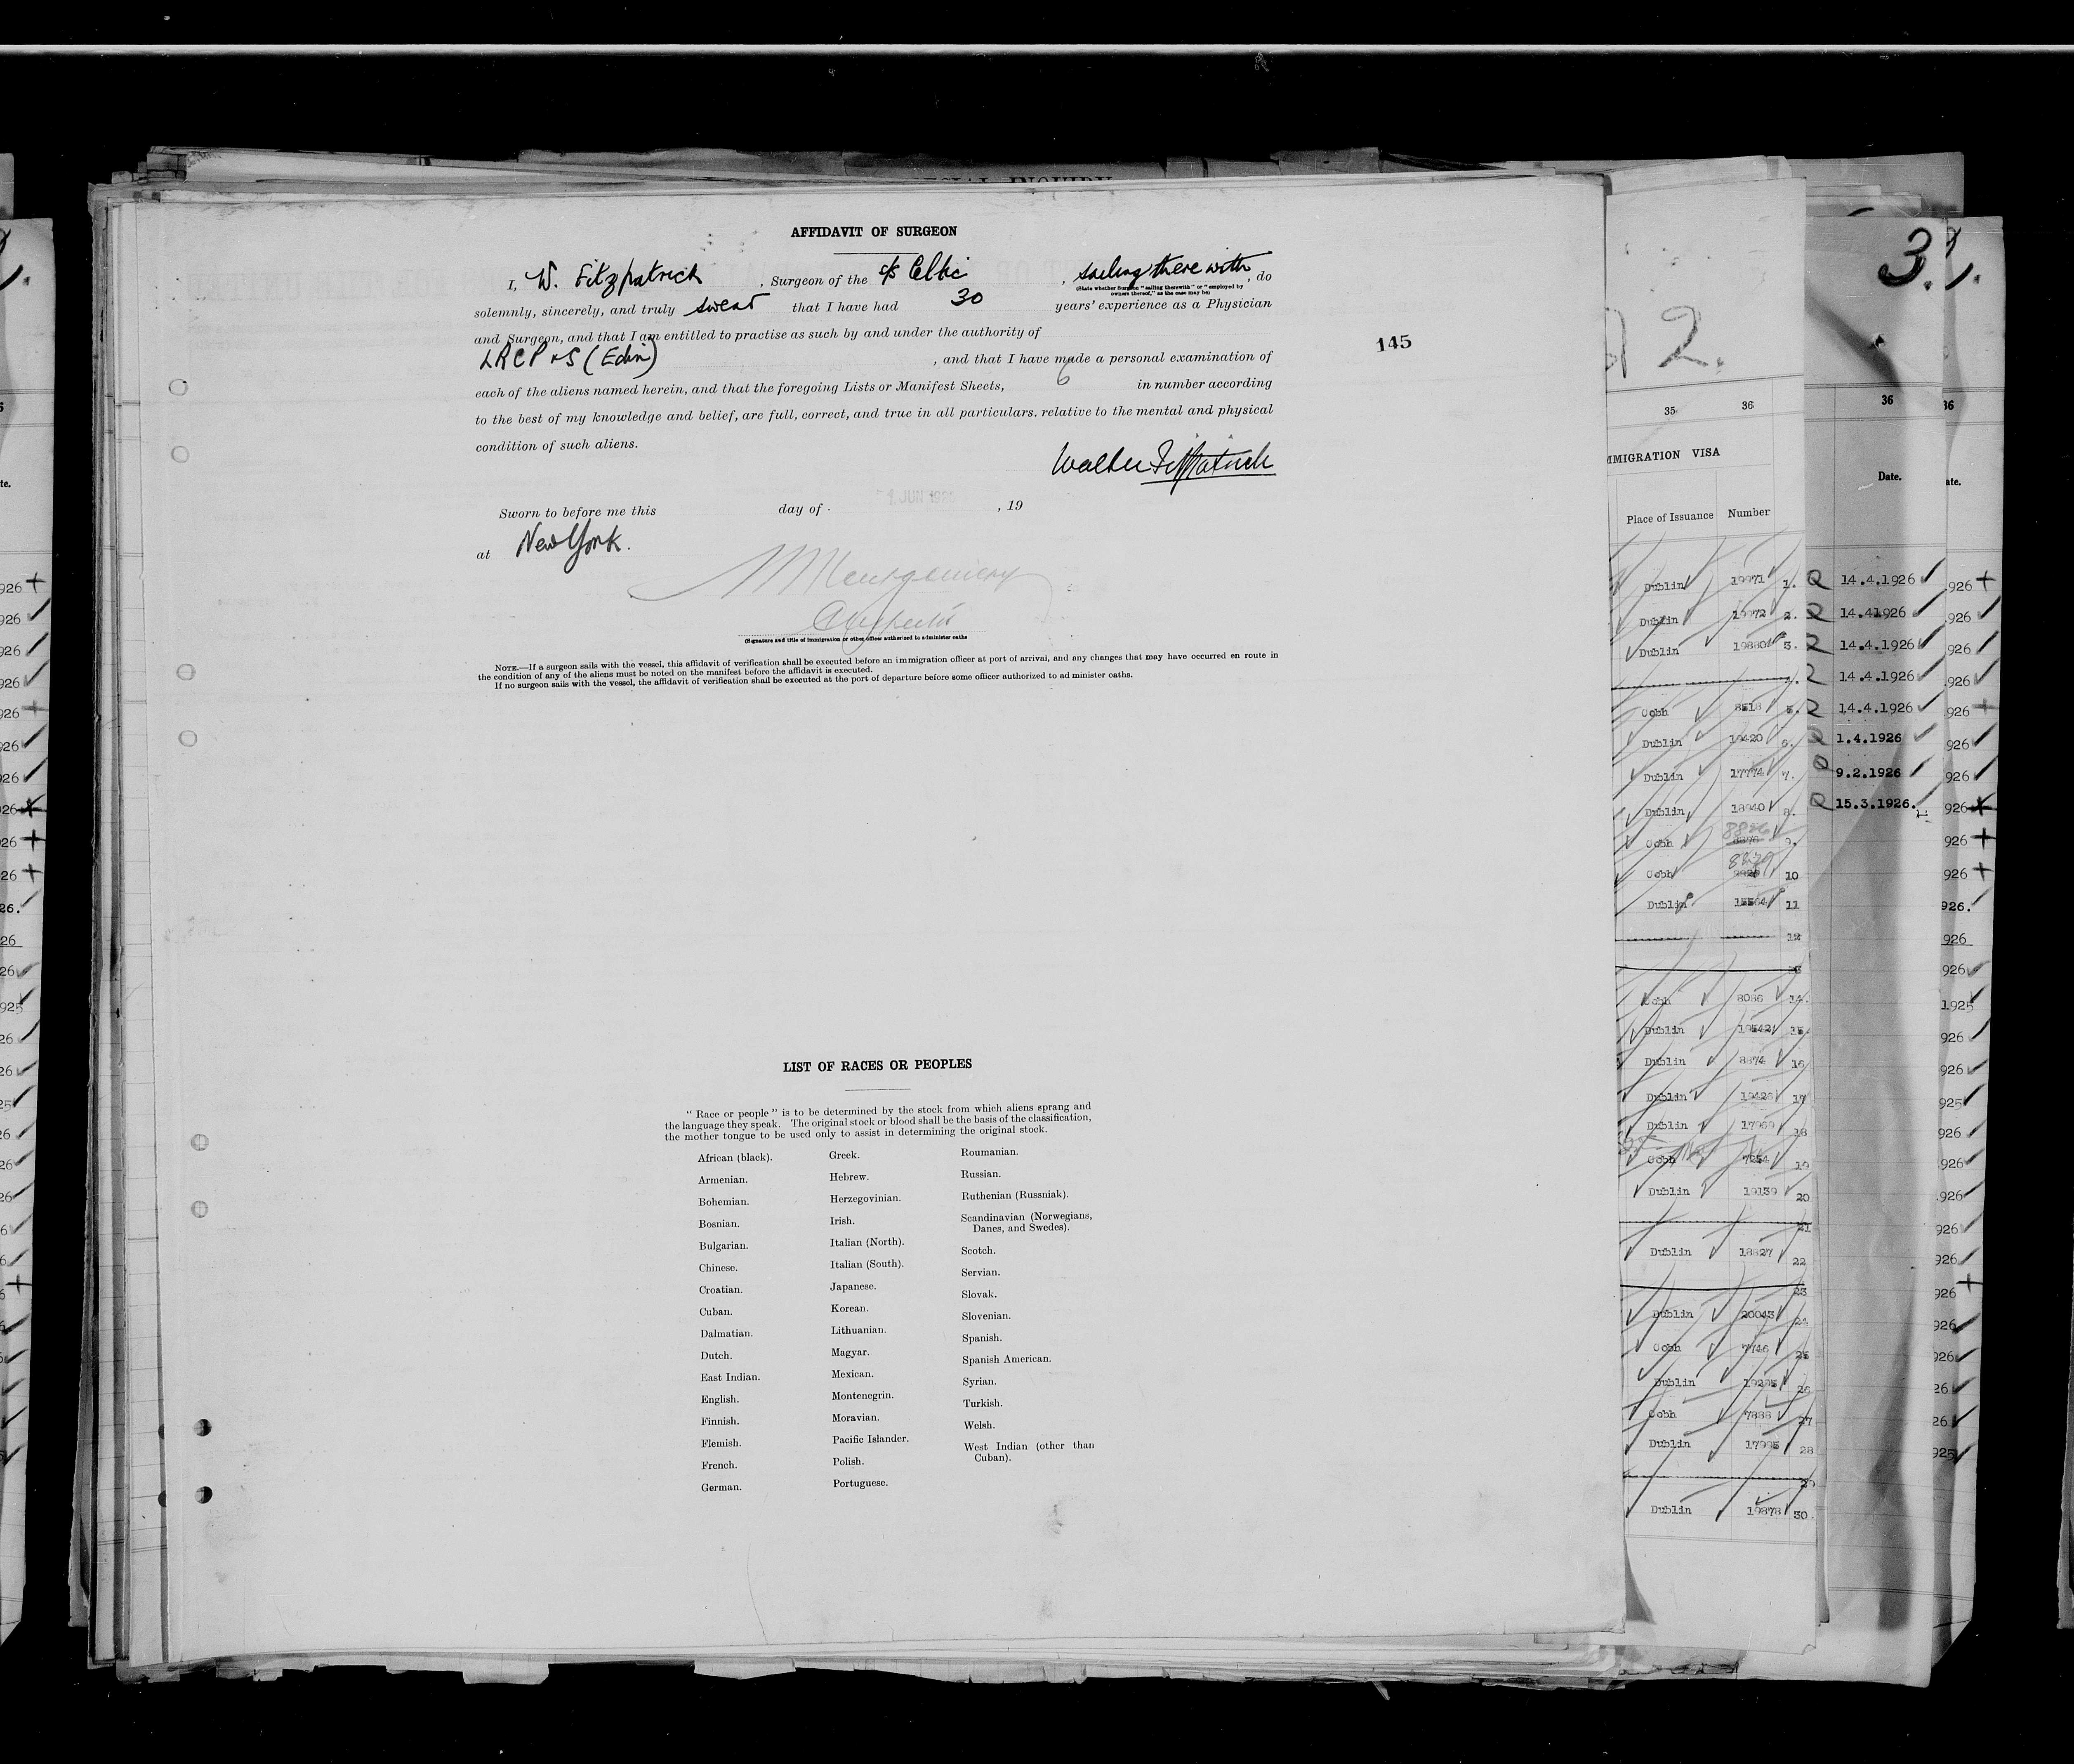 AFFIDAVIT OF SURGEON
I, W. Fitzpatrick, Surgeon of the s/s Celtic, sailing there with, do
(State whether Surgeon "sailing therewith" or "employed by
owners thereof," as the case may be)
solemnly, sincerely, and truly swear that I have had 30 years' experience as a Physician
and Surgeon, and that I am entitled to practise as such by and under the authority of
LRCP & S (Edin), and that I have made a personal examination of
each of the aliens named herein, and that the foregoing Lists or Manifest Sheets, 6 in number according
to the best of my knowledge and belief, are full, correct, and true in all particulars. relative to the mental and physical
condition of such aliens.
Walter Fitzpatrick
Sworn to before me this day of JUN 192 , 19
at New York.
Montgomery
Inspector
(Signature and title of immigration or other officer authorized to administer oaths
NOTE.—If a surgeon sails with the vessel, this affidavit of verification shall be executed before an immigration officer at port of arrival, and any changes that may have occurred en route in
the condition of any of the aliens must be noted on the manifest before the affidavit is executed.
If no surgeon sails with the vessel, the affidavit of verification shall be executed at the port of departure before some officer authorized to administer oaths.
145
LIST OF RACES OR PEOPLES
" Race or people " is to be determined by the stock from which aliens sprang and
the language they speak. The original stock or blood shall be the basis of the classification,
the mother tongue to be used only to assist in determining the original stock.
African (black).
Armenian.
Bohemian.
Bosnian.
Bulgarian.
Chinese.
Croatian.
Cuban.
Dalmatian.
Dutch.
East Indian.
English.
Finnish.
Flemish.
French.
German.
Greek.
Hebrew.
Herzegovinian.
Irish.
Italian (North).
Italian (South).
Japanese.
Korean.
Lithuanian.
Magyar.
Mexican.
Montenegrin.
Moravian.
Pacific Islander.
Polish.
Portuguese.
Roumanian.
Russian.
Ruthenian (Russniak).
Scandinavian (Norwegians,
Danes, and Swedes).
Scotch.
Servian.
Slovak.
Slovenian.
Spanish.
Spanish American.
Syrian.
Turkish.
Welsh.
West Indian (other than
Cuban).
2.
35 36
IMMIGRATION VISA
Place of Issuance Number
Dublin 19971 1.
Dublin 19972 2.
Dublin 19880 3.
4.
Cobh 8518 5.
Dublin 19420 6.
Dublin 17774 7.
Dublin 18940 8.
Cobh 9.
Cobh 10
Dublin 11
12
13
Cobh 8086 14.
Dublin 19542 15.
Dublin 8874 16
Dublin 19428 17
Dublin 17969 18
Cobh 7254 19
Dublin 19139 20
21
Dublin 18827 22
23
Dublin 20043 24
Cobh 7746 25
Dublin 26
Cobh 7888 27
Dublin 17995 28
29
Dublin 19878 30.
3.
36
Date.
14.4.1926
14.41926
14.4.1926
14.4.1926
14.4.1926
1.4.1926
9.2.1926
15.3.1926.